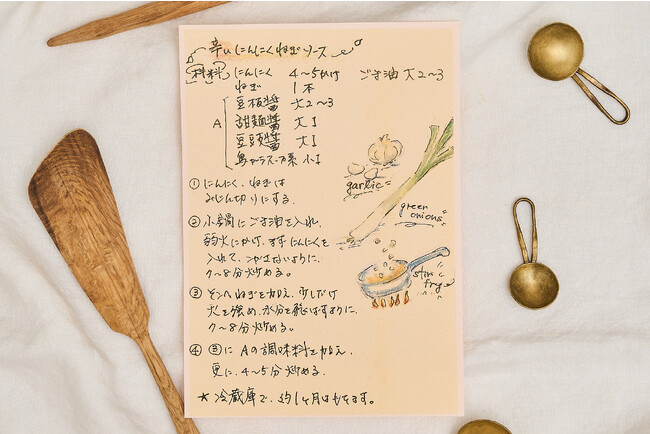 辛いにんにくねぎソース
材料 にんにく 4～5かけ ごま油 大2～3
ねぎ 1本
A 豆板醤 大2～3
甜麺醤 大1
豆豉醤 大1
鶏がらスープの素 小1
① にんにく、ねぎは
みじん切りにする。
② 小鍋にごま油を入れ、
弱火にかけ、まずにんにくを
入れて、こがさないように、
7～8分炒める。
③ そこへねぎを加え、少しだけ
火を強め、水分を飛ばすように、
7～8分炒める。
④ ③に Aの調味料を加え、
更に、4～5分炒める。
★ 冷蔵庫で、約1ヶ月はもちます。
garlic
green
onions
stir
fry